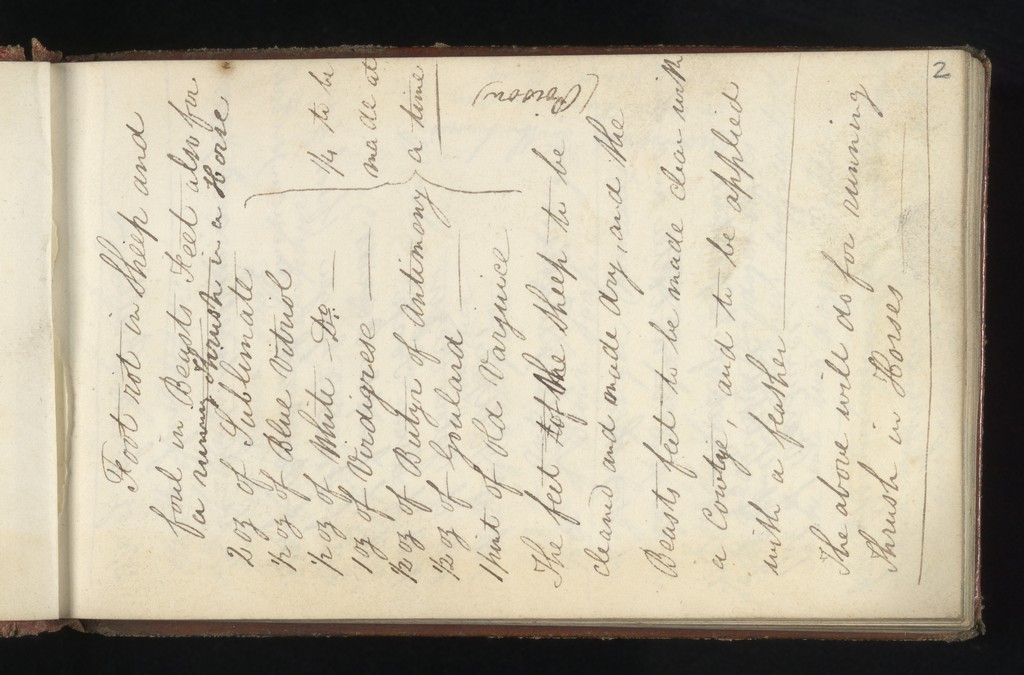 2
Foot rot in Sheep and
foul in Beasts Feet also for
a running Thrush in a Horse
2 oz of Sublimate
½ oz of Blue Vitriol
½ oz of White Do.
1 oz of Virdigrese
½ oz of Butyr of Antimony
½ oz of Goulard
1 pint of Old Varguice
¼ to be
made at
a time
(Poison)
The feet of the Sheep to be
cleand and made dry, and the
Beasts feet to be made clear with
a Cowtye, and to be applied
with a feather
The above will do for running
Thrush in Horses